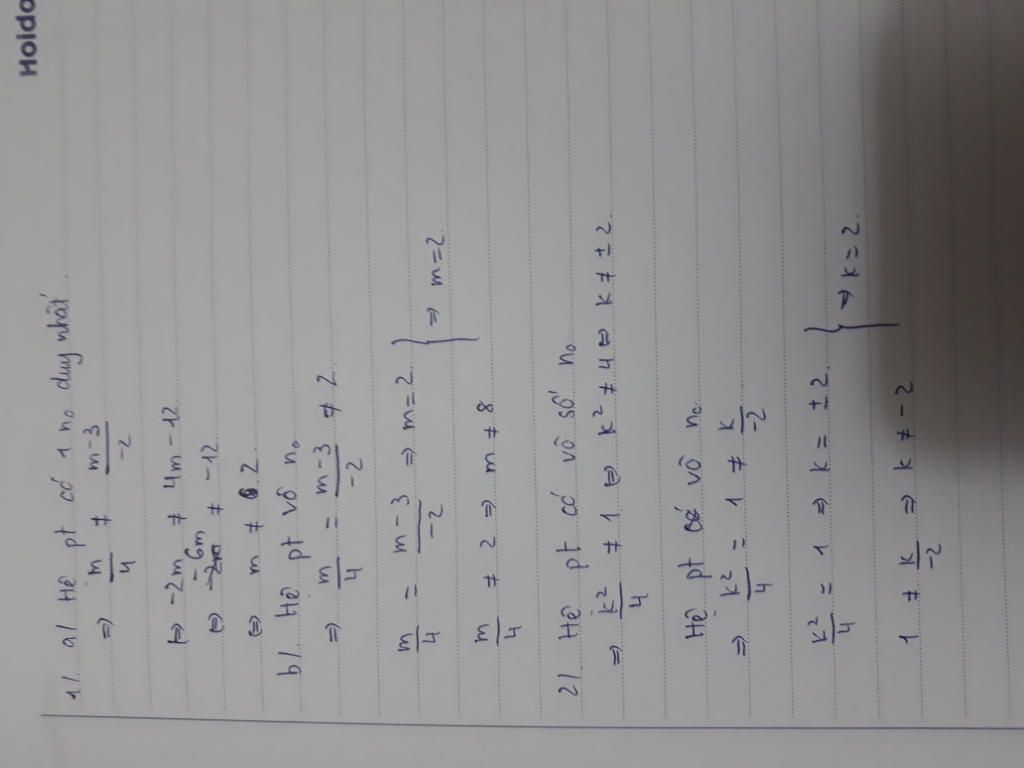 Holdo
1/. a/ Hệ pt có 1 n₀ duy nhất.
⇒ m/4 ≠ (m-3)/-2
⇔ -2m ≠ 4m - 12
⇔ -6m ≠ -12
⇔ m ≠ 2
b/. Hệ pt vô n₀
⇒ m/4 = (m-3)/-2 ≠ 2
m/4 = (m-3)/-2 ⇒ m=2
m/4 ≠ 2 ⇒ m ≠ 8
} ⇒ m=2
2/. Hệ pt có vô số n₀
⇒ k²/4 ≠ 1 ⇔ k² ≠ 4 ⇔ k ≠ ±2
Hệ pt vô n₀
⇒ k²/4 = 1 ≠ k/-2
k²/4 = 1 ⇒ k = ±2
1 ≠ k/-2 ⇒ k ≠ -2
} ⇒ k = 2